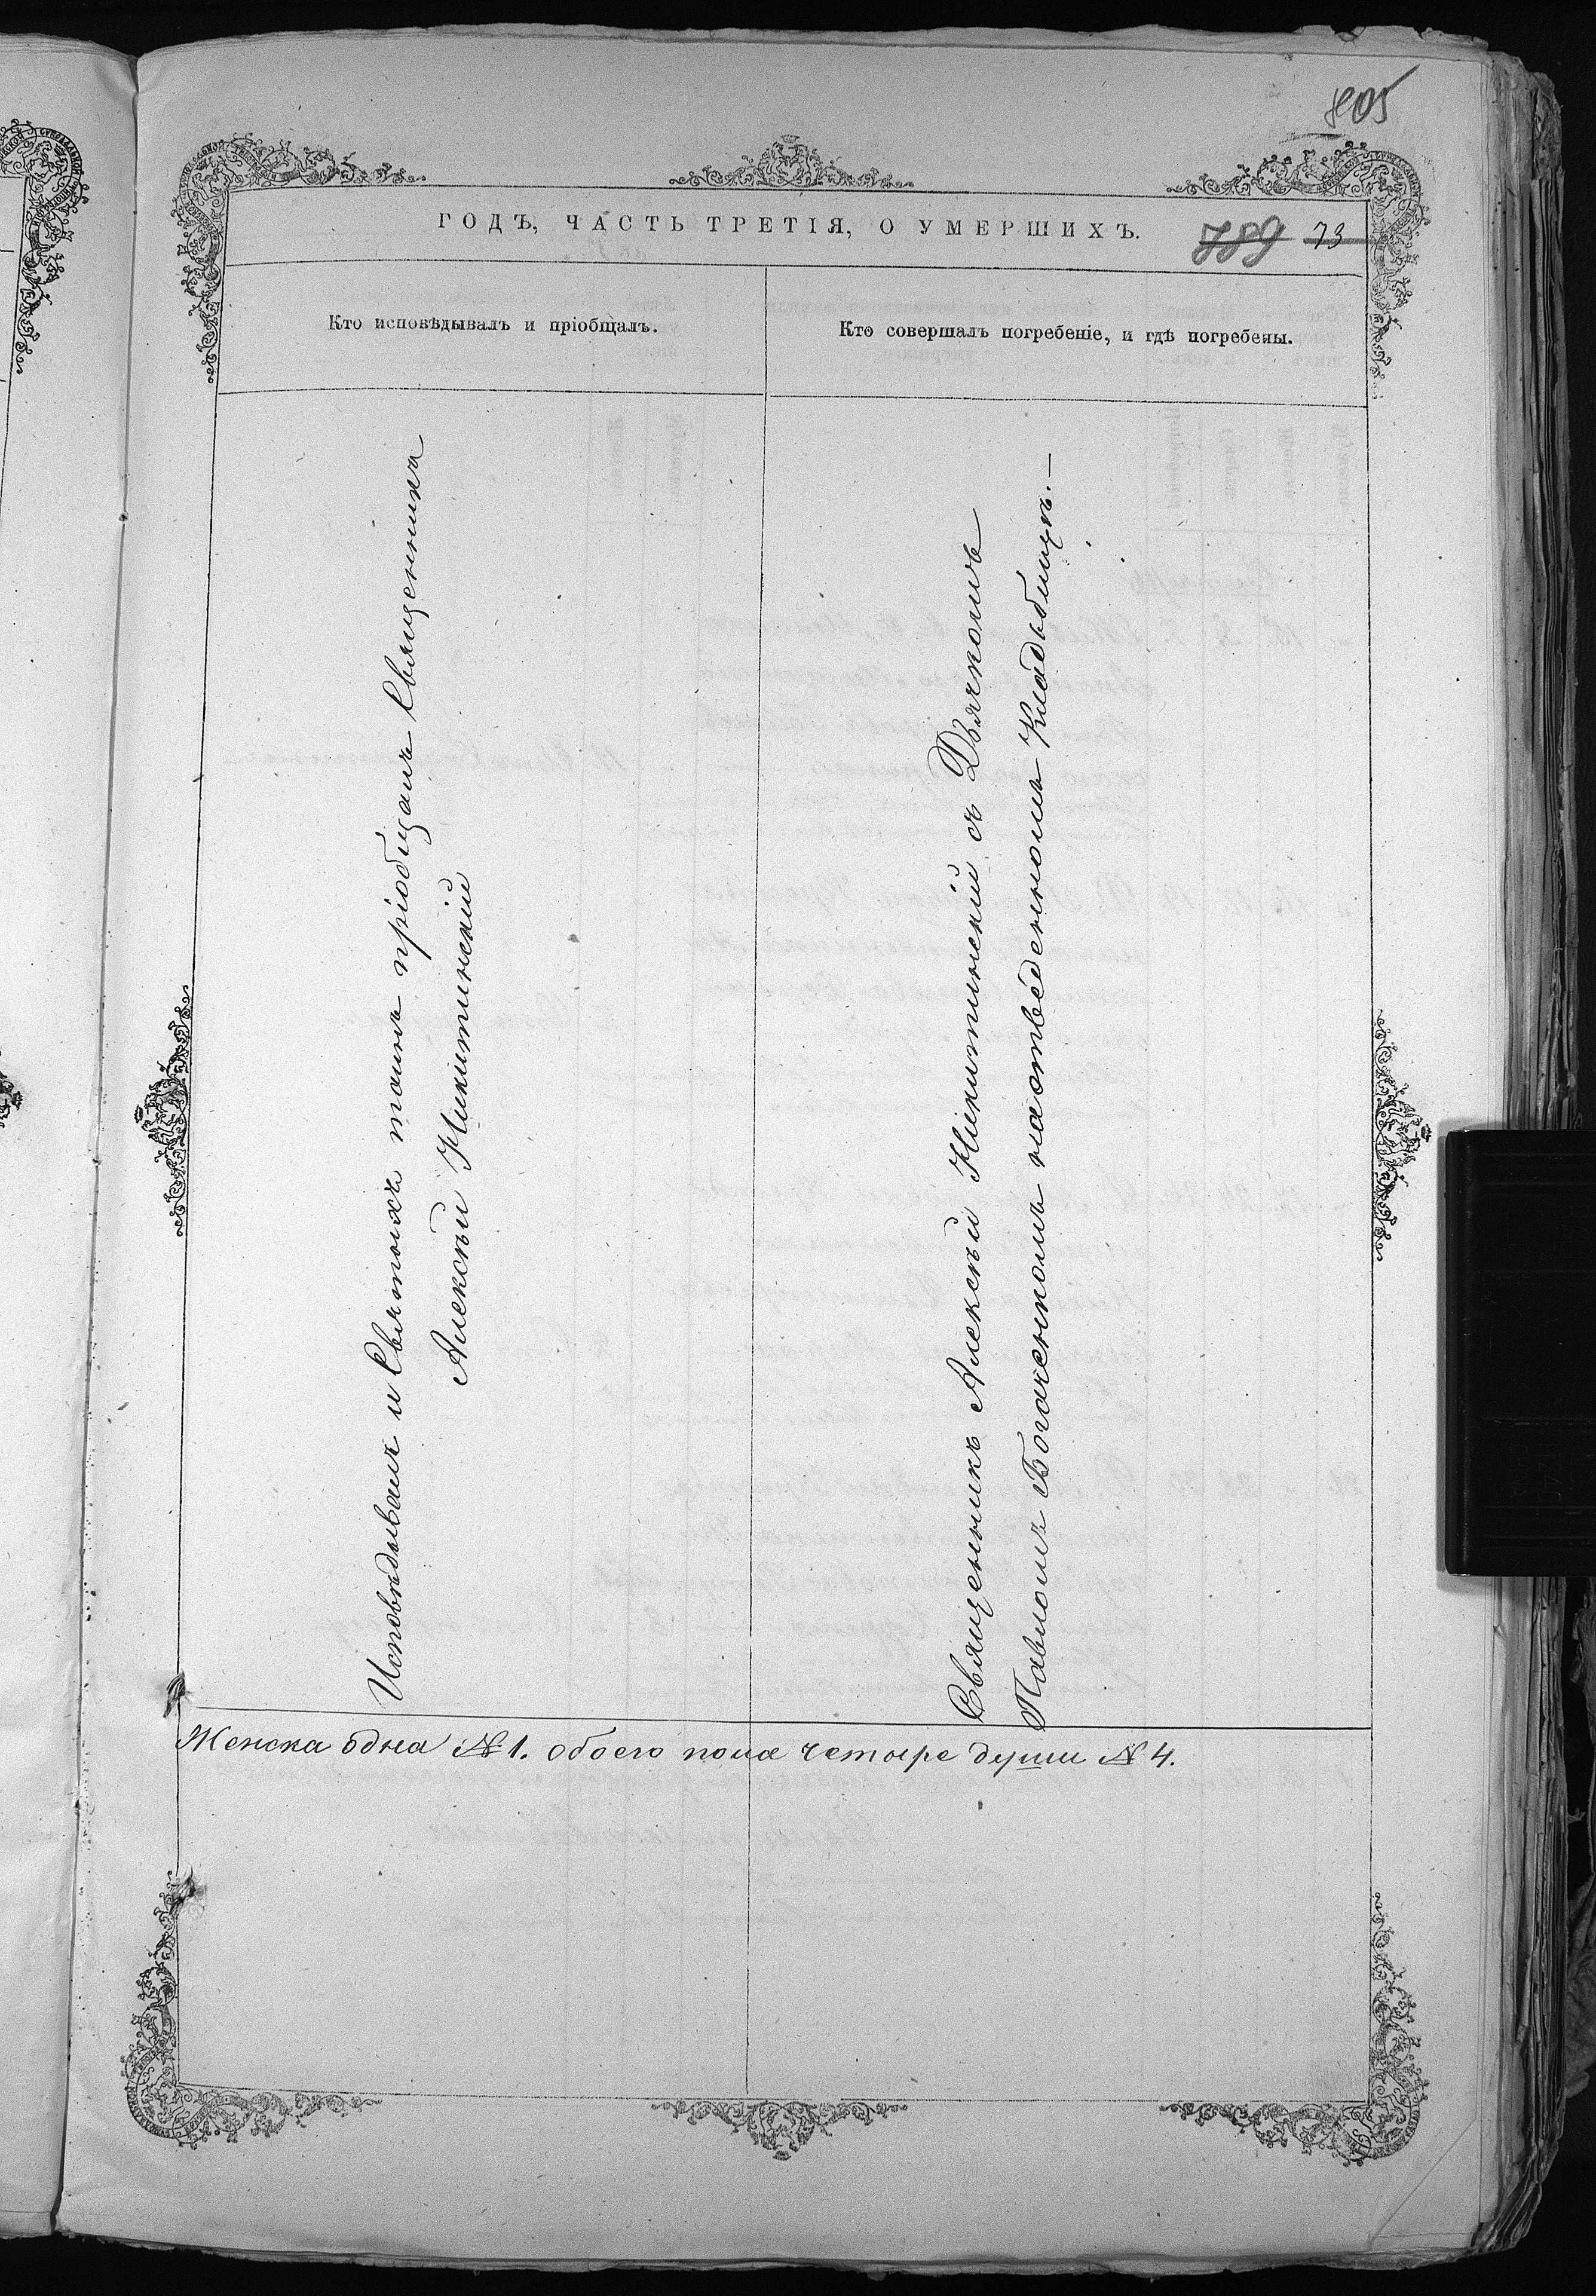 805
ГОДЪ, ЧАСТЬ ТРЕТІЯ, О УМЕРШИХЪ.
789 73
Кто исповѣдывалъ и пріобщалъ.
Кто совершалъ погребеніе, и гдѣ погребены.
Исповѣдывалъ и Святыхъ таинъ пріобщалъ Священникъ
Алексѣй Никитинскій
Священникъ Алексѣй Никитинскій съ Дьячкомъ
Павломъ Богаченкомъ на отведенномъ Кладбищѣ.—
Женска одна № 1. обоего пола четыре души № 4.